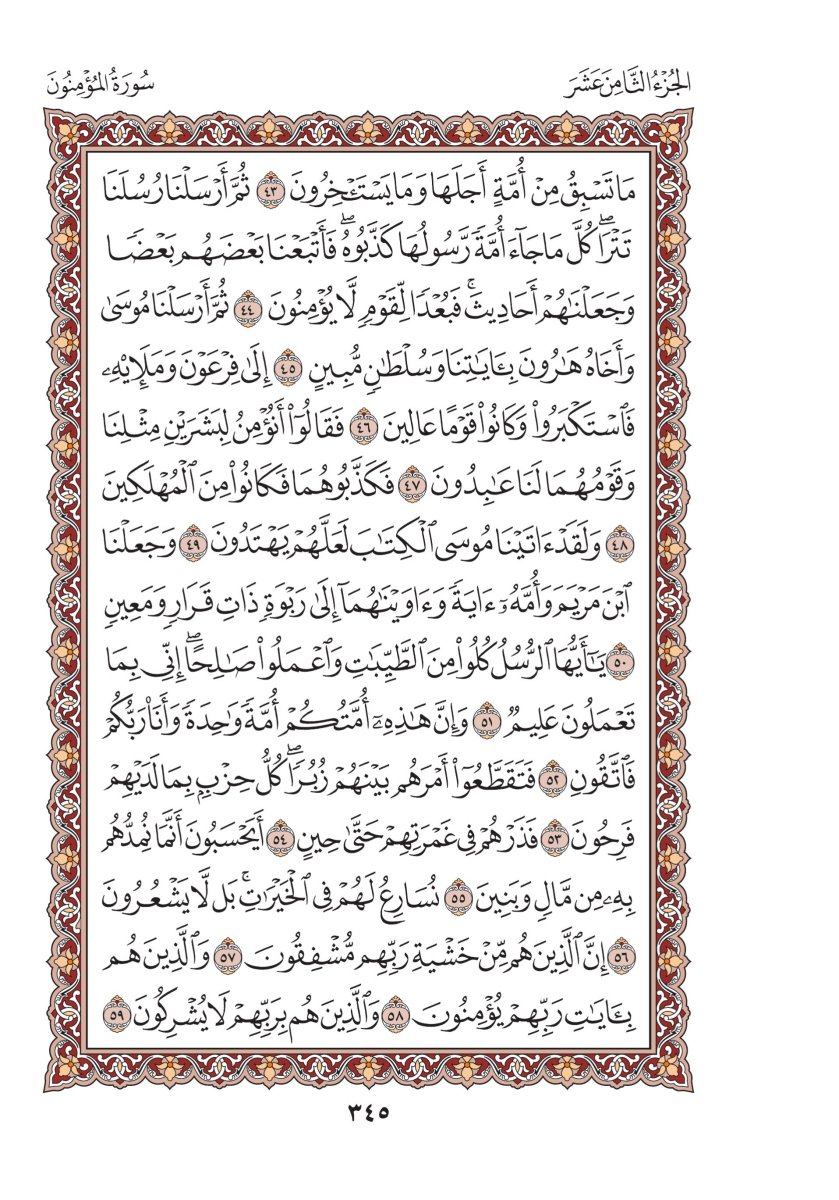 الجُزْءُ الثَّامِنَ عَشَرَ
سُورَةُ المُؤْمِنُونَ
مَا تَسْبِقُ مِنْ أُمَّةٍ أَجَلَهَا وَمَا يَسْتَـْٔخِرُونَ ٤٣ ثُمَّ أَرْسَلْنَا رُسُلَنَا
تَتْرَاۖ كُلَّ مَا جَآءَ أُمَّةً رَّسُولُهَا كَذَّبُوهُۖ فَأَتْبَعْنَا بَعْضَهُم بَعْضًا
وَجَعَلْنَٰهُمْ أَحَادِيثَۚ فَبُعْدًا لِّقَوْمٍ لَّا يُؤْمِنُونَ ٤٤ ثُمَّ أَرْسَلْنَا مُوسَىٰ
وَأَخَاهُ هَٰرُونَ بِـَٔايَٰتِنَا وَسُلْطَٰنٍ مُّبِينٍ ٤٥ إِلَىٰ فِرْعَوْنَ وَمَلَإِيْهِۦ
فَٱسْتَكْبَرُوا۟ وَكَانُوا۟ قَوْمًا عَالِينَ ٤٦ فَقَالُوٓا۟ أَنُؤْمِنُ لِبَشَرَيْنِ مِثْلِنَا
وَقَوْمُهُمَا لَنَا عَٰبِدُونَ ٤٧ فَكَذَّبُوهُمَا فَكَانُوا۟ مِنَ ٱلْمُهْلَكِينَ
٤٨ وَلَقَدْ ءَاتَيْنَا مُوسَى ٱلْكِتَٰبَ لَعَلَّهُمْ يَهْتَدُونَ ٤٩ وَجَعَلْنَا
ٱبْنَ مَرْيَمَ وَأُمَّهُۥٓ ءَايَةً وَءَاوَيْنَٰهُمَآ إِلَىٰ رَبْوَةٍ ذَاتِ قَرَارٍ وَمَعِينٍ
٥٠ يَٰٓأَيُّهَا ٱلرُّسُلُ كُلُوا۟ مِنَ ٱلطَّيِّبَٰتِ وَٱعْمَلُوا۟ صَٰلِحًاۖ إِنِّى بِمَا
تَعْمَلُونَ عَلِيمٌ ٥١ وَإِنَّ هَٰذِهِۦٓ أُمَّتُكُمْ أُمَّةً وَٰحِدَةً وَأَنَا۠ رَبُّكُمْ
فَٱتَّقُونِ ٥٢ فَتَقَطَّعُوٓا۟ أَمْرَهُم بَيْنَهُمْ زُبُرًاۖ كُلُّ حِزْبٍۭ بِمَا لَدَيْهِمْ
فَرِحُونَ ٥٣ فَذَرْهُمْ فِى غَمْرَتِهِمْ حَتَّىٰ حِينٍ ٥٤ أَيَحْسَبُونَ أَنَّمَا نُمِدُّهُم
بِهِۦ مِن مَّالٍ وَبَنِينَ ٥٥ نُسَارِعُ لَهُمْ فِى ٱلْخَيْرَٰتِۚ بَل لَّا يَشْعُرُونَ
٥٦ إِنَّ ٱلَّذِينَ هُم مِّنْ خَشْيَةِ رَبِّهِم مُّشْفِقُونَ ٥٧ وَٱلَّذِينَ هُم
بِـَٔايَٰتِ رَبِّهِمْ يُؤْمِنُونَ ٥٨ وَٱلَّذِينَ هُم بِرَبِّهِمْ لَا يُشْرِكُونَ ٥٩
٣٤٥